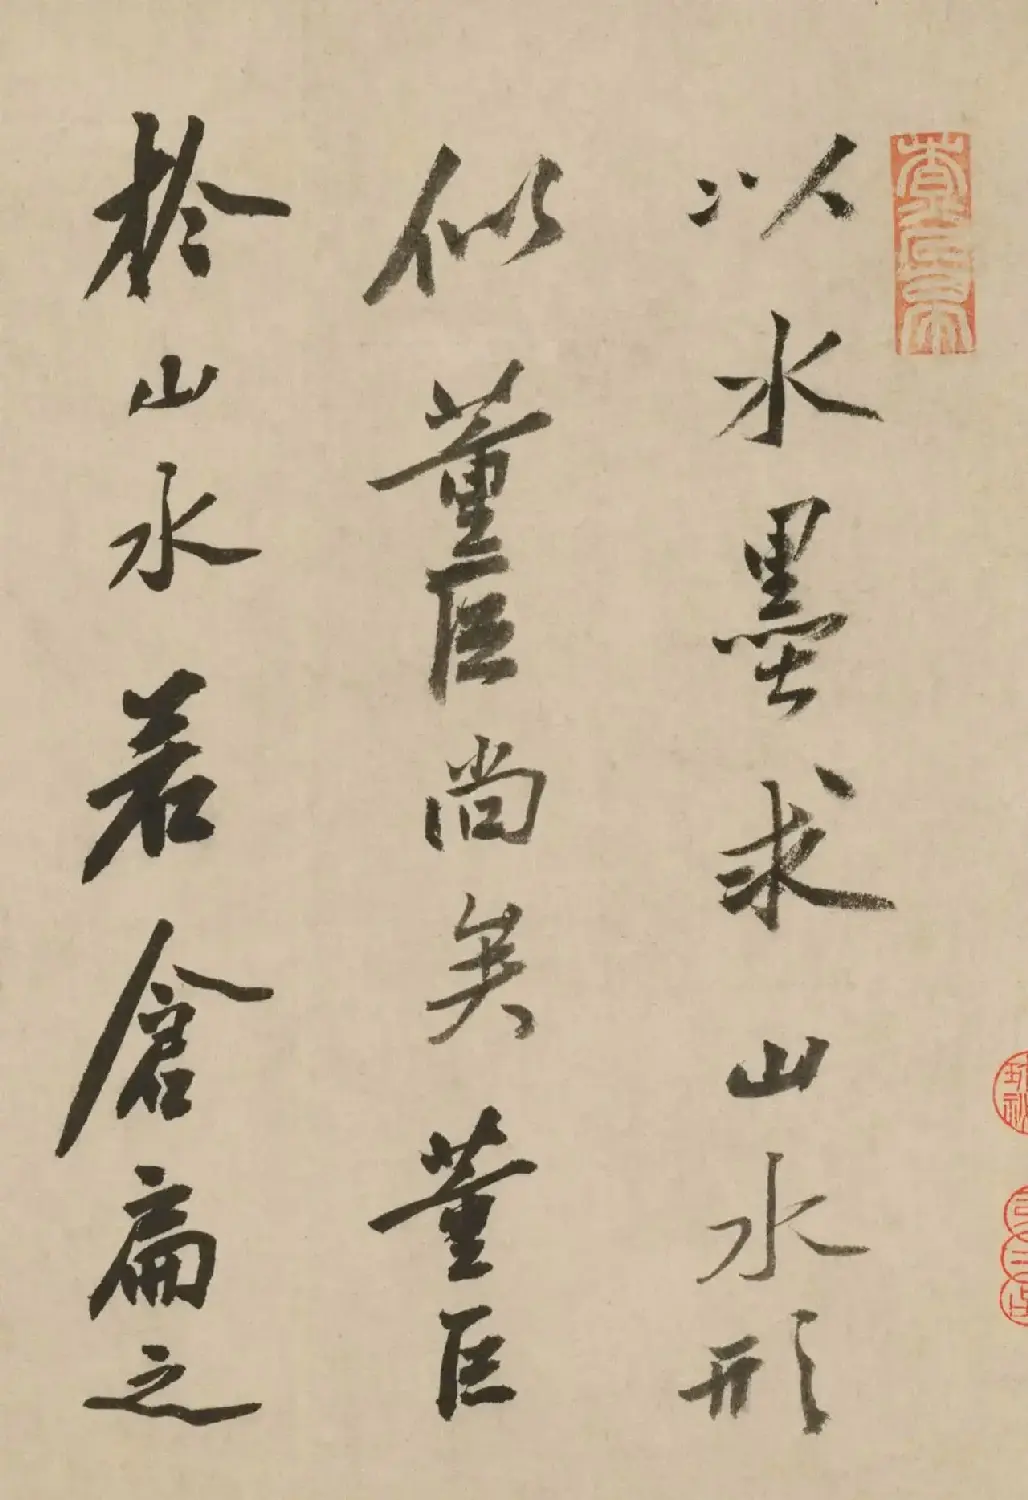 以水墨求山水形
似董巨尚矣董巨
於山水若倉扁之